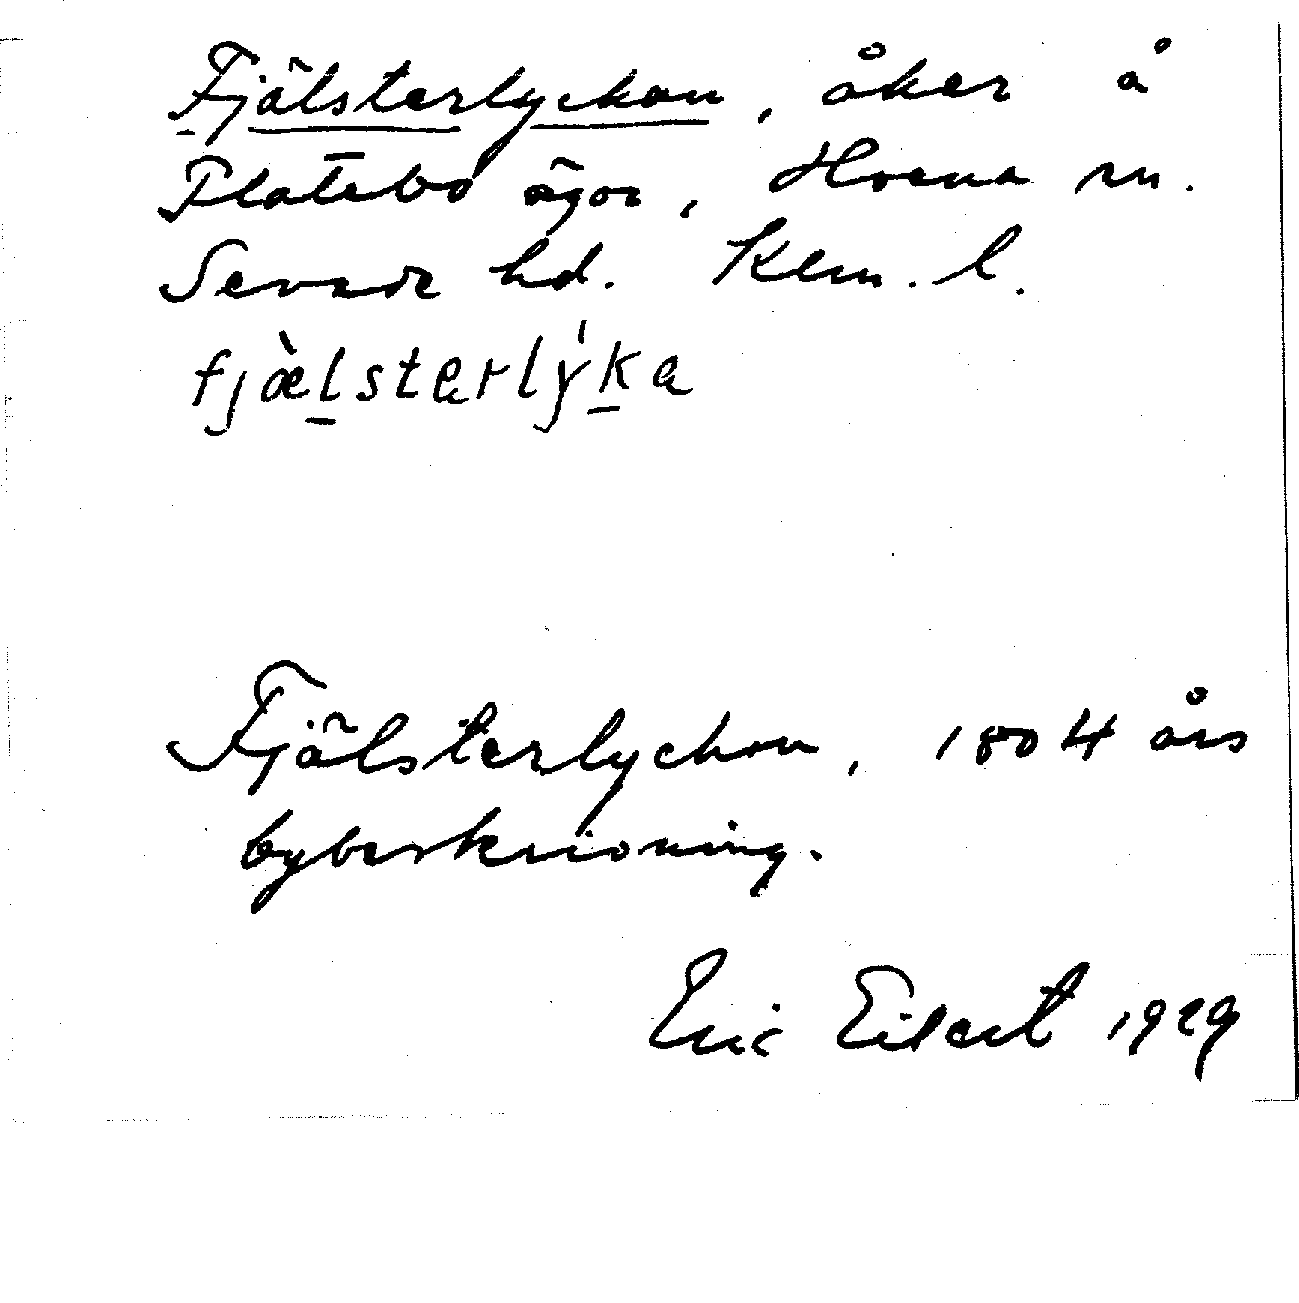 Fjälsterlyckan, åker å
Flatebo ägor, Hvena sn.
Sevede hd. Klm. l.
fjæ̀lsterlýka
Fjälsterlyckan, 1804 års
bybeskrivning.
Eric Eilert 1929